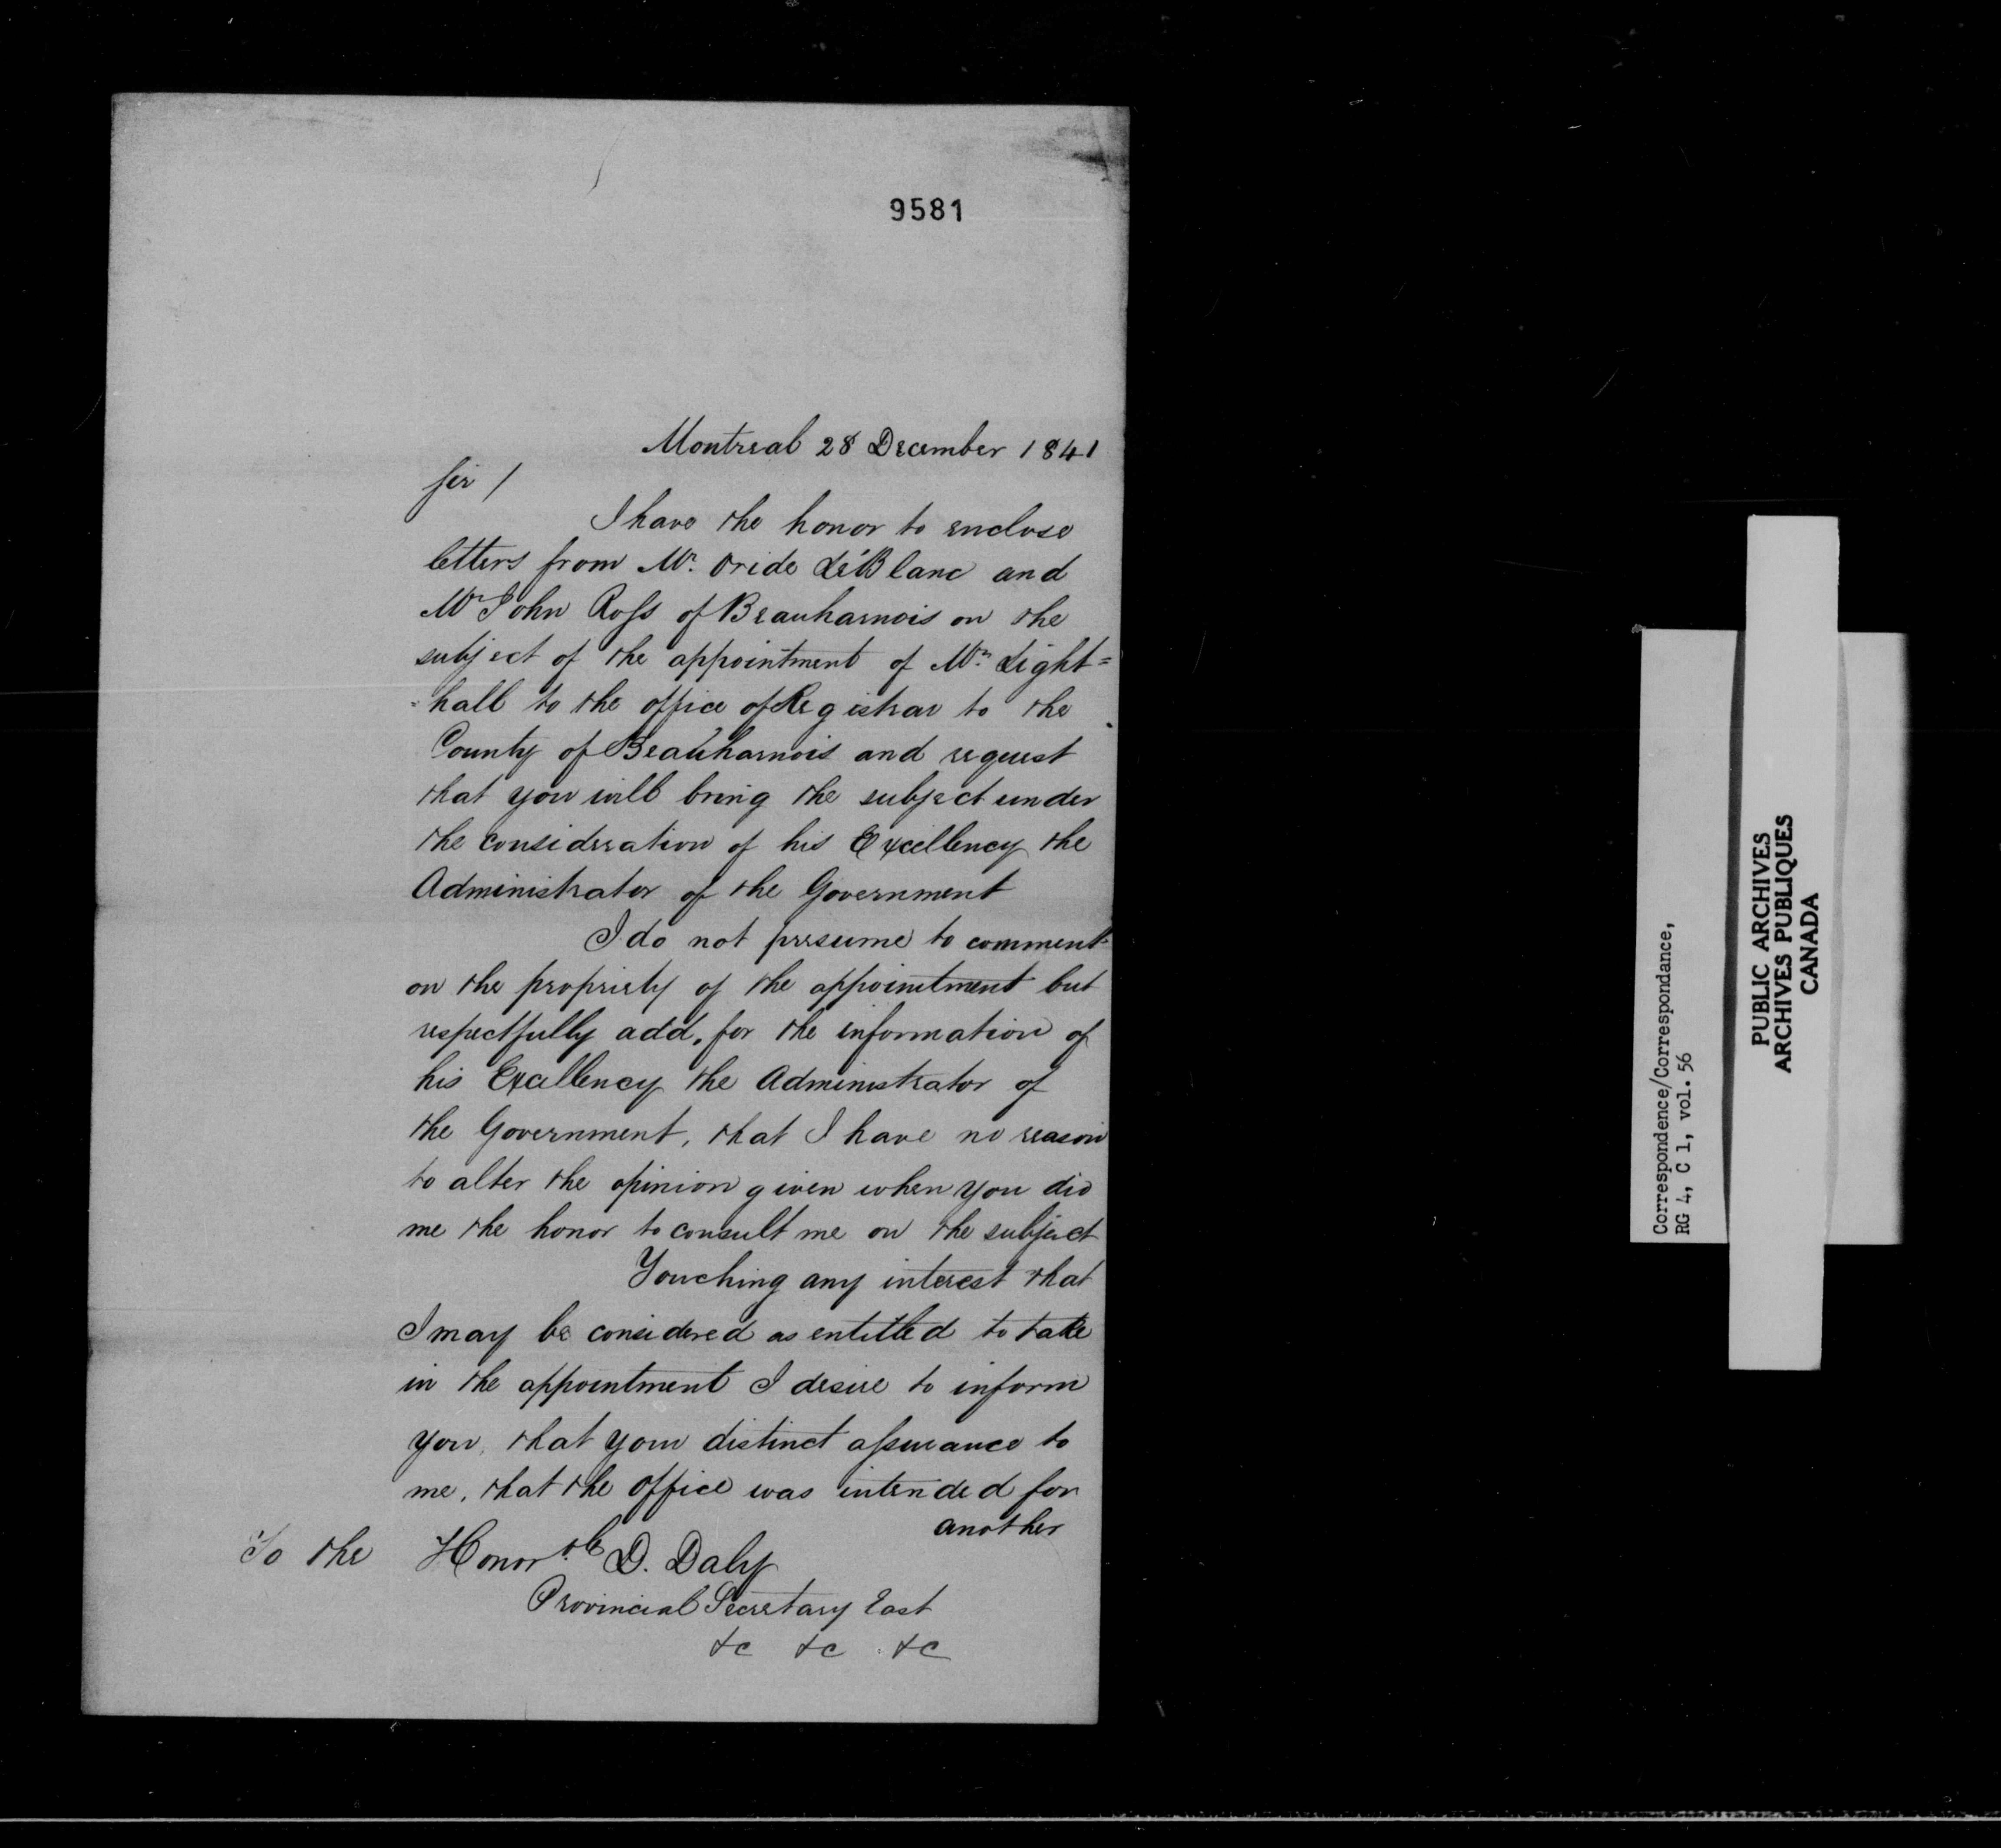 9581
Montreal 28 December 1841
Sir /
I have the honor to enclose
letters from Mr. Ovide Le'Blanc and
Mr John Ross of Beauharnois on the
subject of the appointment of Mr. Light=
=hall to the office of Registrar to the
County of Beauharnois and request
that you will bring the subject under
the consideration of his Excellency the
Administrator of the Government
I do not presume to comment
on the propriety of the appointment but
respectfully add, for the information of
his Excellency the Administrator of
the Government, that I have no reason
to alter the opinion given when you did
me the honor to consult me on the subject
Touching any interest that
I may be considered as entitled to take
in the appointment I desire to inform
you, that your distinct assurance to
me, that the office was intended for
another
To the Honorble D. Daly
Provincial Secretary East
&c &c &c
Correspondence/Correspondance,
RG 4, C 1, vol. 56
PUBLIC ARCHIVES
ARCHIVES PUBLIQUES
CANADA